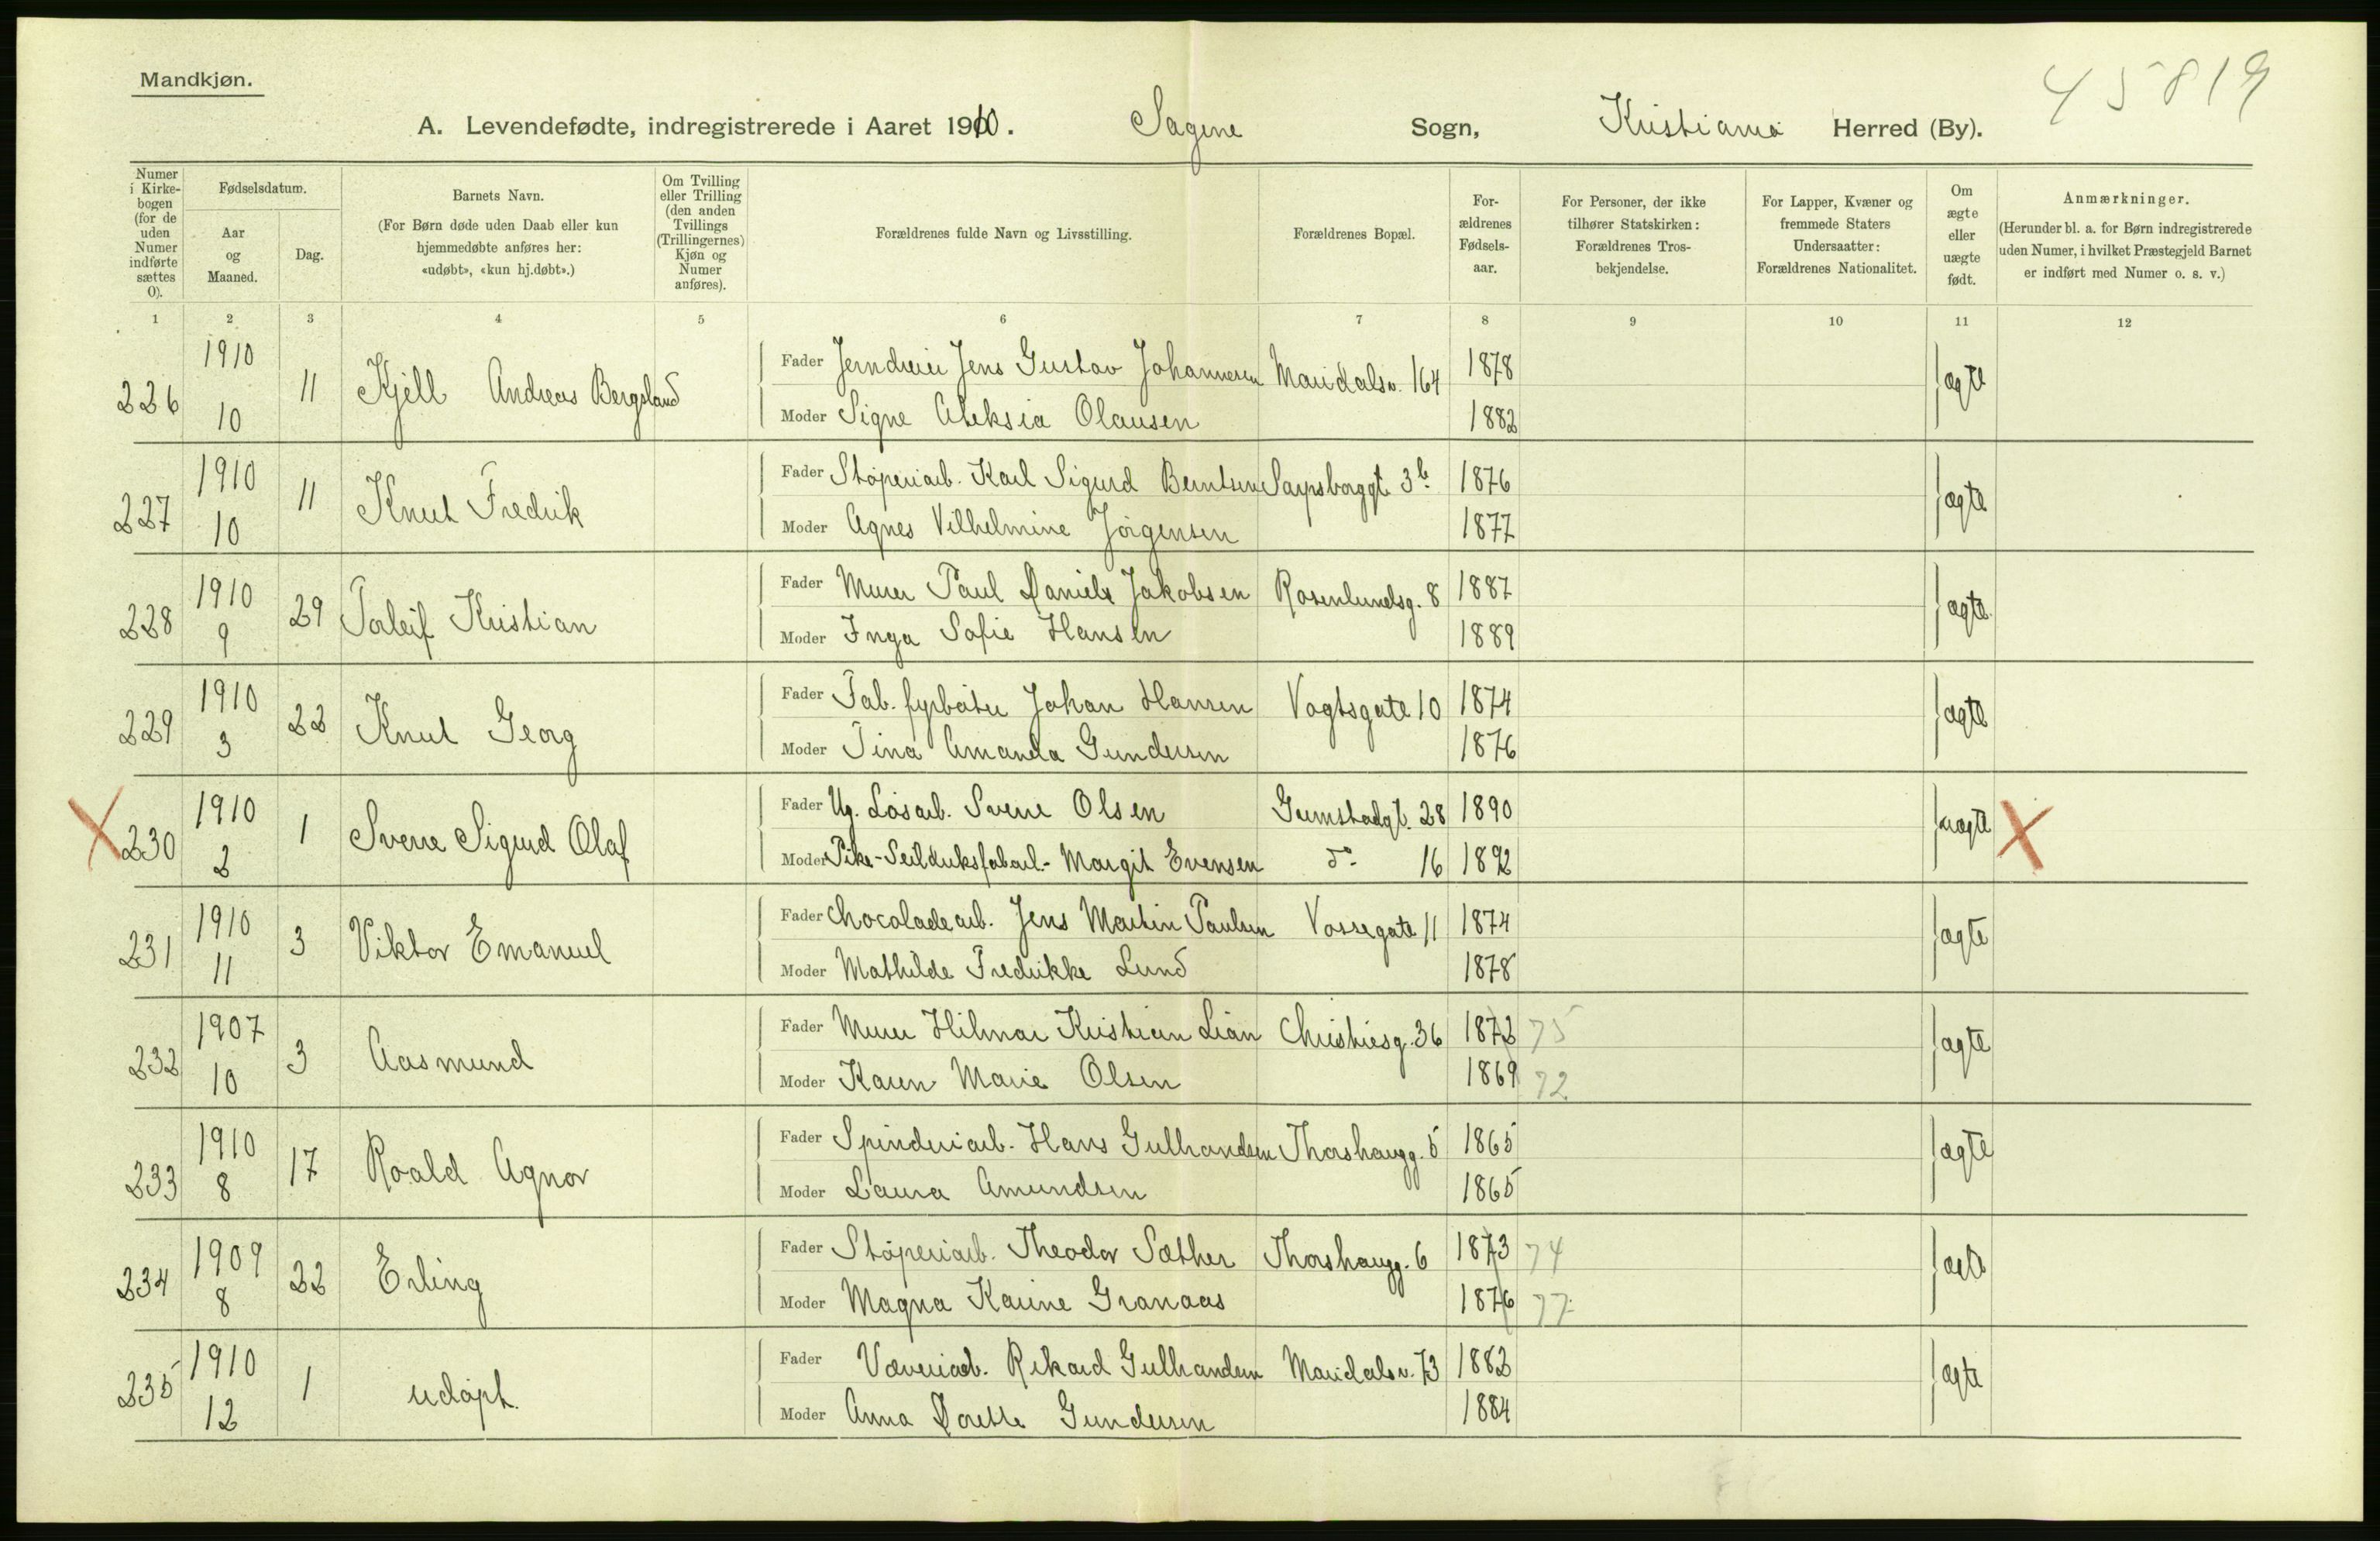 Mandkjøn.
45819
A. Levendefødte, indregistrerede i Aaret 1910. Sagene Sogn, Kristiania Herred (By).
Numer i Kirkebogen (for de uden Numer indførte sættes 0).
Fødselsdatum.
Aar og Maaned.
Dag.
Barnets Navn.
(For Børn døde uden Daab eller kun hjemmedøbte anføres her: «udøbt», «kun hj.døbt».)
Om Tvilling eller Trilling (den anden Tvillings (Trillingernes) Kjøn og Numer anføres).
Forældrenes fulde Navn og Livsstilling.
Forældrenes Bopæl.
Forældrenes Fødselsaar.
For Personer, der ikke tilhører Statskirken: Forældrenes Trosbekjendelse.
For Lapper, Kvæner og fremmede Staters Undersaatter: Forældrenes Nationalitet.
Om ægte eller uægte født.
Anmærkninger.
(Herunder bl. a. for Børn indregistrerede uden Numer, i hvilket Præstegjeld Barnet er indført med Numer o. s. v.)
1 2 3 4 5 6 7 8 9 10 11 12
226 1910 10 11 Kjell Andreas Bergsland Fader Jerndreier Jens Gustav Johannesen Maridalsv. 164 1878 ægte
Moder Signe Aleksia Olausen 1882
227 1910 10 11 Knut Fredrik Fader Støperiarb. Karl Sigurd Berntsen Sarpsborggt. 3b. 1876 ægte
Moder Agnes Vilhelmine Jörgensen 1877
228 1910 9 29 Torleif Kristian Fader Murer Paul Daniels Jakobsen Rosenlundsg. 8 1887 ægte
Moder Inga Sofie Hansen 1889
229 1910 3 22 Knut Georg Fader Fab. fyrbøter Johan Hansen Vogtsgate 10 1874 ægte
Moder Tina Amanda Gundersen 1876
X 230 1910 2 1 Sverre Sigurd Olaf Fader Ug. Løsarb. Sverre Olsen 28 1890 uægte X
Moder Pike - Seilduksfabarb. - Margit Evensen do 16 1892
231 1910 11 3 Viktor Emanuel Fader Chocoladearb. Jens Martin Paulsen Vossegate 11 1874 ægte
Moder Mathilde Fredrikke Lund 1878
232 1907 10 3 Aasmund Fader Murer Hilmar Kristian Lian Christiesg. 36 1872 75 ægte
Moder Karen Marie Olsen 1869 72
233 1910 8 17 Roald Agnor Fader Spinderiarb. Hans Gulhandsen Thorshaugg. 5 1865 ægte
Moder Laura Amundsen 1865
234 1909 8 22 Erling Fader Støperiarb. Theodor Sæther Thorshaugg. 6 1873 74 ægte
Moder Magna Karine Granaas 1876 77
235 1910 12 1 udøpt. Fader Væveriarb. Rikard Gulhandsen Maridalsv. 73 1882 ægte
Moder Anna Dorette Gundersen 1884